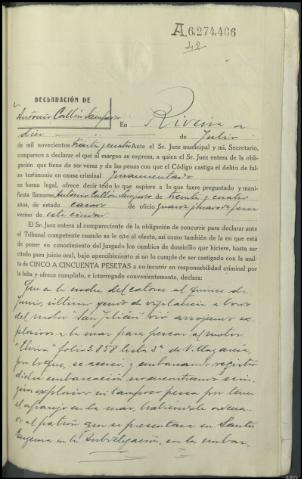 A6.274.466
42
DECLARACIÓN DE
Antonio
En Riveira a
de Julio
de mil novecientos treinta y cuatro Ante el Sr. Juez municipal y mi, Secretario,
comparece a declarar el que al margen se expresa, a quien el Sr. Juez entera de la obli-
gación que tiene de ser veraz y de las penas con que el Código castiga el delito de fal-
so testimonio en causa criminal Juramentado
en forma legal, ofrece decir todo lo que supiere a lo que fuere preguntado y mani-
fiesta llamarse Antonio de treinta y cuatro
años, de estado casado de oficio
vecino de esta ciudad
El Sr. Juez entera al compareciente de la obligación de concurrir para declarar ante
el Tribunal competente cuando se le cite al efecto, así como también de la en que está
de poner en conocimiento del Juzgado los cambios de domicilio que hiciere, hasta ser
citado para juicio oral, bajo apercibimiento si no lo cumple de ser castigado con la mul-
ta de CINCO A CINCUENTA PESETAS o a incurrir en responsabilidad criminal por
la falta y ofrece cumplirlo, e interrogado convenientemente, declara:
Que a la noche del catorce al quince de
Junio, último yendo de vigilancia a bordo
del motor "San Julián" vió arrojando ex-
plosivos a la mar para pescar al motor
folio 3.858 lista 3ª de Villagarcía,
por lo que, se acercó, y embarcando registró
dicha embarcación no encontrando nin-
gún explosivo ni tampoco pesca por tener
el aparejo en la mar, habiéndole ordena-
do al patrón que se presentara en Santa
Eugenia en la Subdelegación, en la embar-